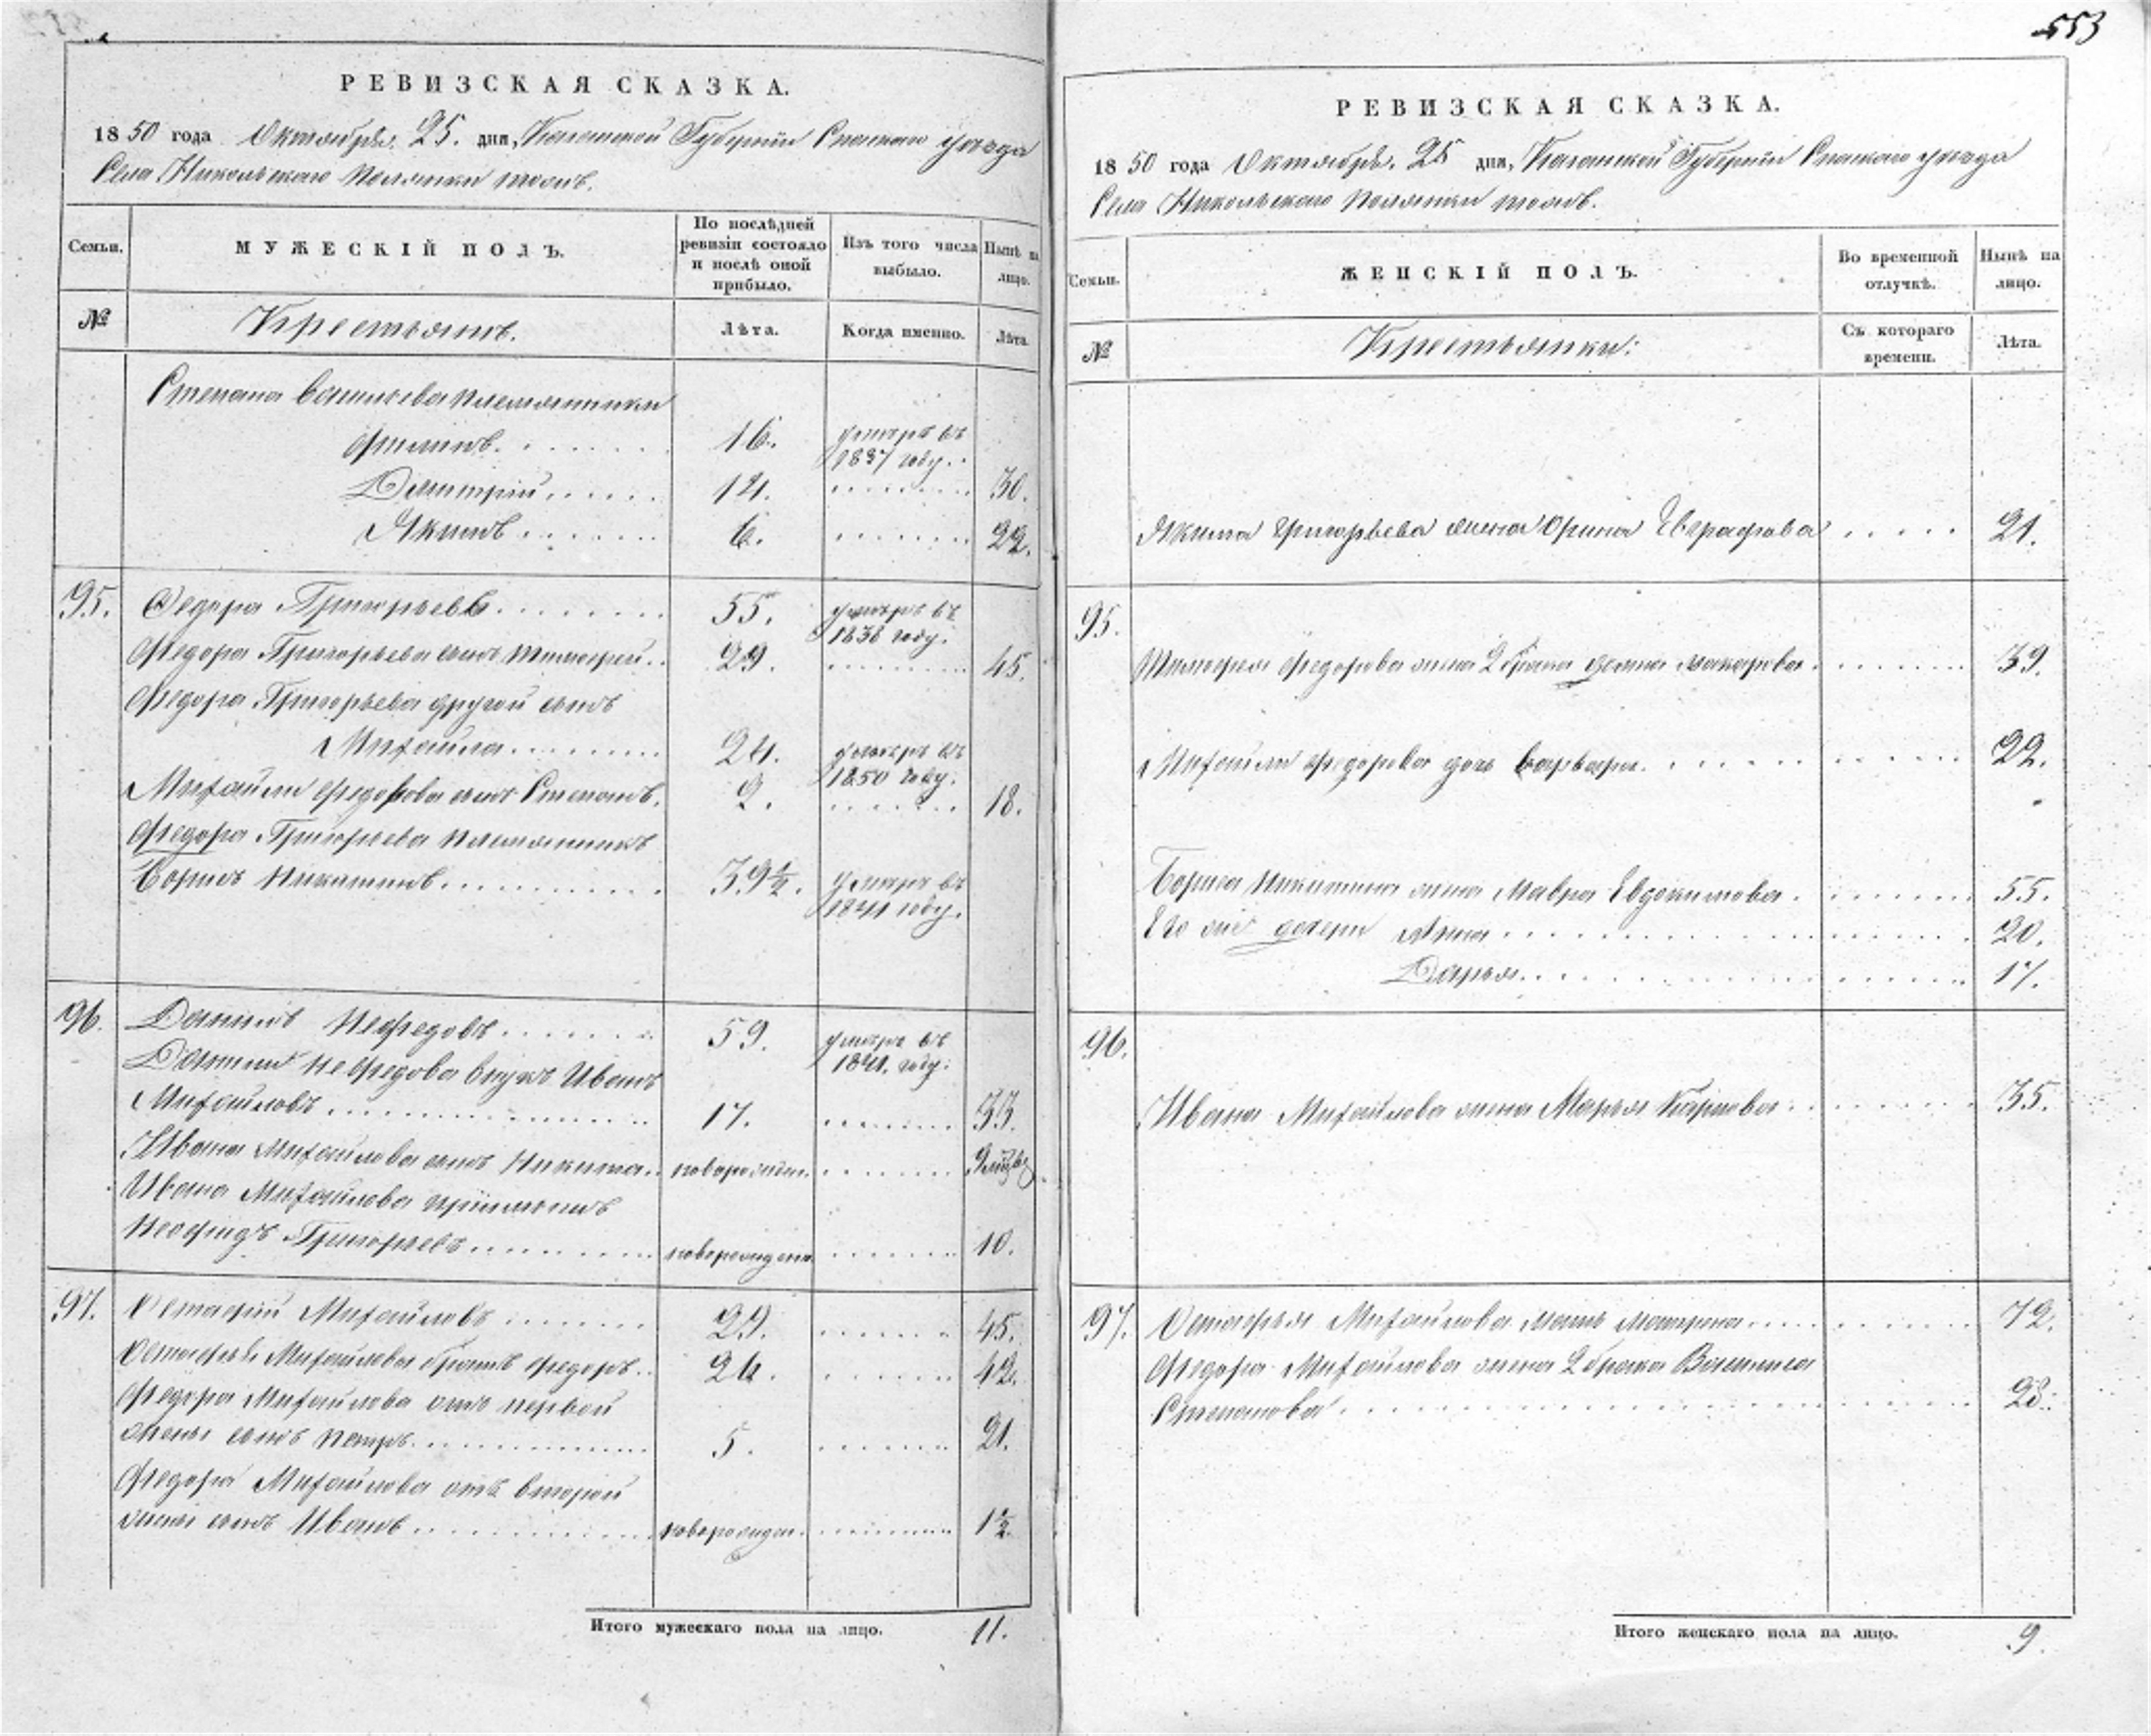 553
РЕВИЗСКАЯ СКАЗКА.
1850 года Октября 25. дня, Казанской Губернiи Спаскаго уѣзда
Села Никольскаго Полянки тожъ.
Семьи.
МУЖЕСКIЙ ПОЛЪ.
По послѣдней ревизiи состояло и послѣ оной прибыло.
Изъ того числа выбыло.
Нынѣ на лицо.
№
Крестьянъ.
Лѣта.
Когда именно.
Лѣта.
Степана Васильева племянники
Филипъ. 16. умеръ въ 1837 году.
Дмитрiй 14. 30.
Якимъ 6. 22.
95. Федоръ Григорьевъ 55. умеръ въ 1836 году.
Федора Григорьева сынъ Тимофей 29. 45.
Федора Григорьева другой сынъ
Михайла 24. умеръ въ 1850 году.
Михайлы Федорова сынъ Степанъ. 2. 18.
Федора Григорьева племянникъ
Борисъ Никитинъ 39½. умеръ въ 1841 году.
96. Данилъ Нефедовъ 59. умеръ въ 1841. году.
Данилы Нефедова внукъ Иванъ
Михайловъ 17. 33.
Ивана Михайлова сынъ Никита новорожден. 9 мѣсяц.
Ивана Михайлова прiимышъ
Григорьевъ новорожден. 10.
97. Остафiй Михайловъ 29. 45.
Остафья Михайлова братъ Федоръ 26. 42.
Федора Михайлова отъ первой
жены сынъ Петръ 5. 21.
Федора Михайлова отъ второй
жены сынъ Иванъ новорожден. 1½.
Итого мужескаго пола на лицо. 11.
РЕВИЗСКАЯ СКАЗКА.
1850 года Октября. 25 дня, Казанской Губернiи Спаскаго уѣзда
Села Никольскаго Полянки тожъ.
Семьи.
ЖЕНСКIЙ ПОЛЪ.
Во временной отлучкѣ.
Нынѣ на лицо.
№
Крестьянки:
Съ котораго времени.
Лѣта.
Якима Григорьева жена Орина Евграфова 21.
95.
Тимофея Федорова жена 2 брака Макарова 39.
Михайлы Федорова дочь Варвара 22.
Бориса Никитина жена Мавра Евдокимова 55.
Его же дочери Анна 20.
Дарья 17.
96.
Ивана Михайлова жена Марья Карпова 35.
97. Остафья Михайлова мать Матрена 72.
Федора Михайлова жена 2 брака Василиса
Степанова 28.
Итого женскаго пола на лицо. 9.